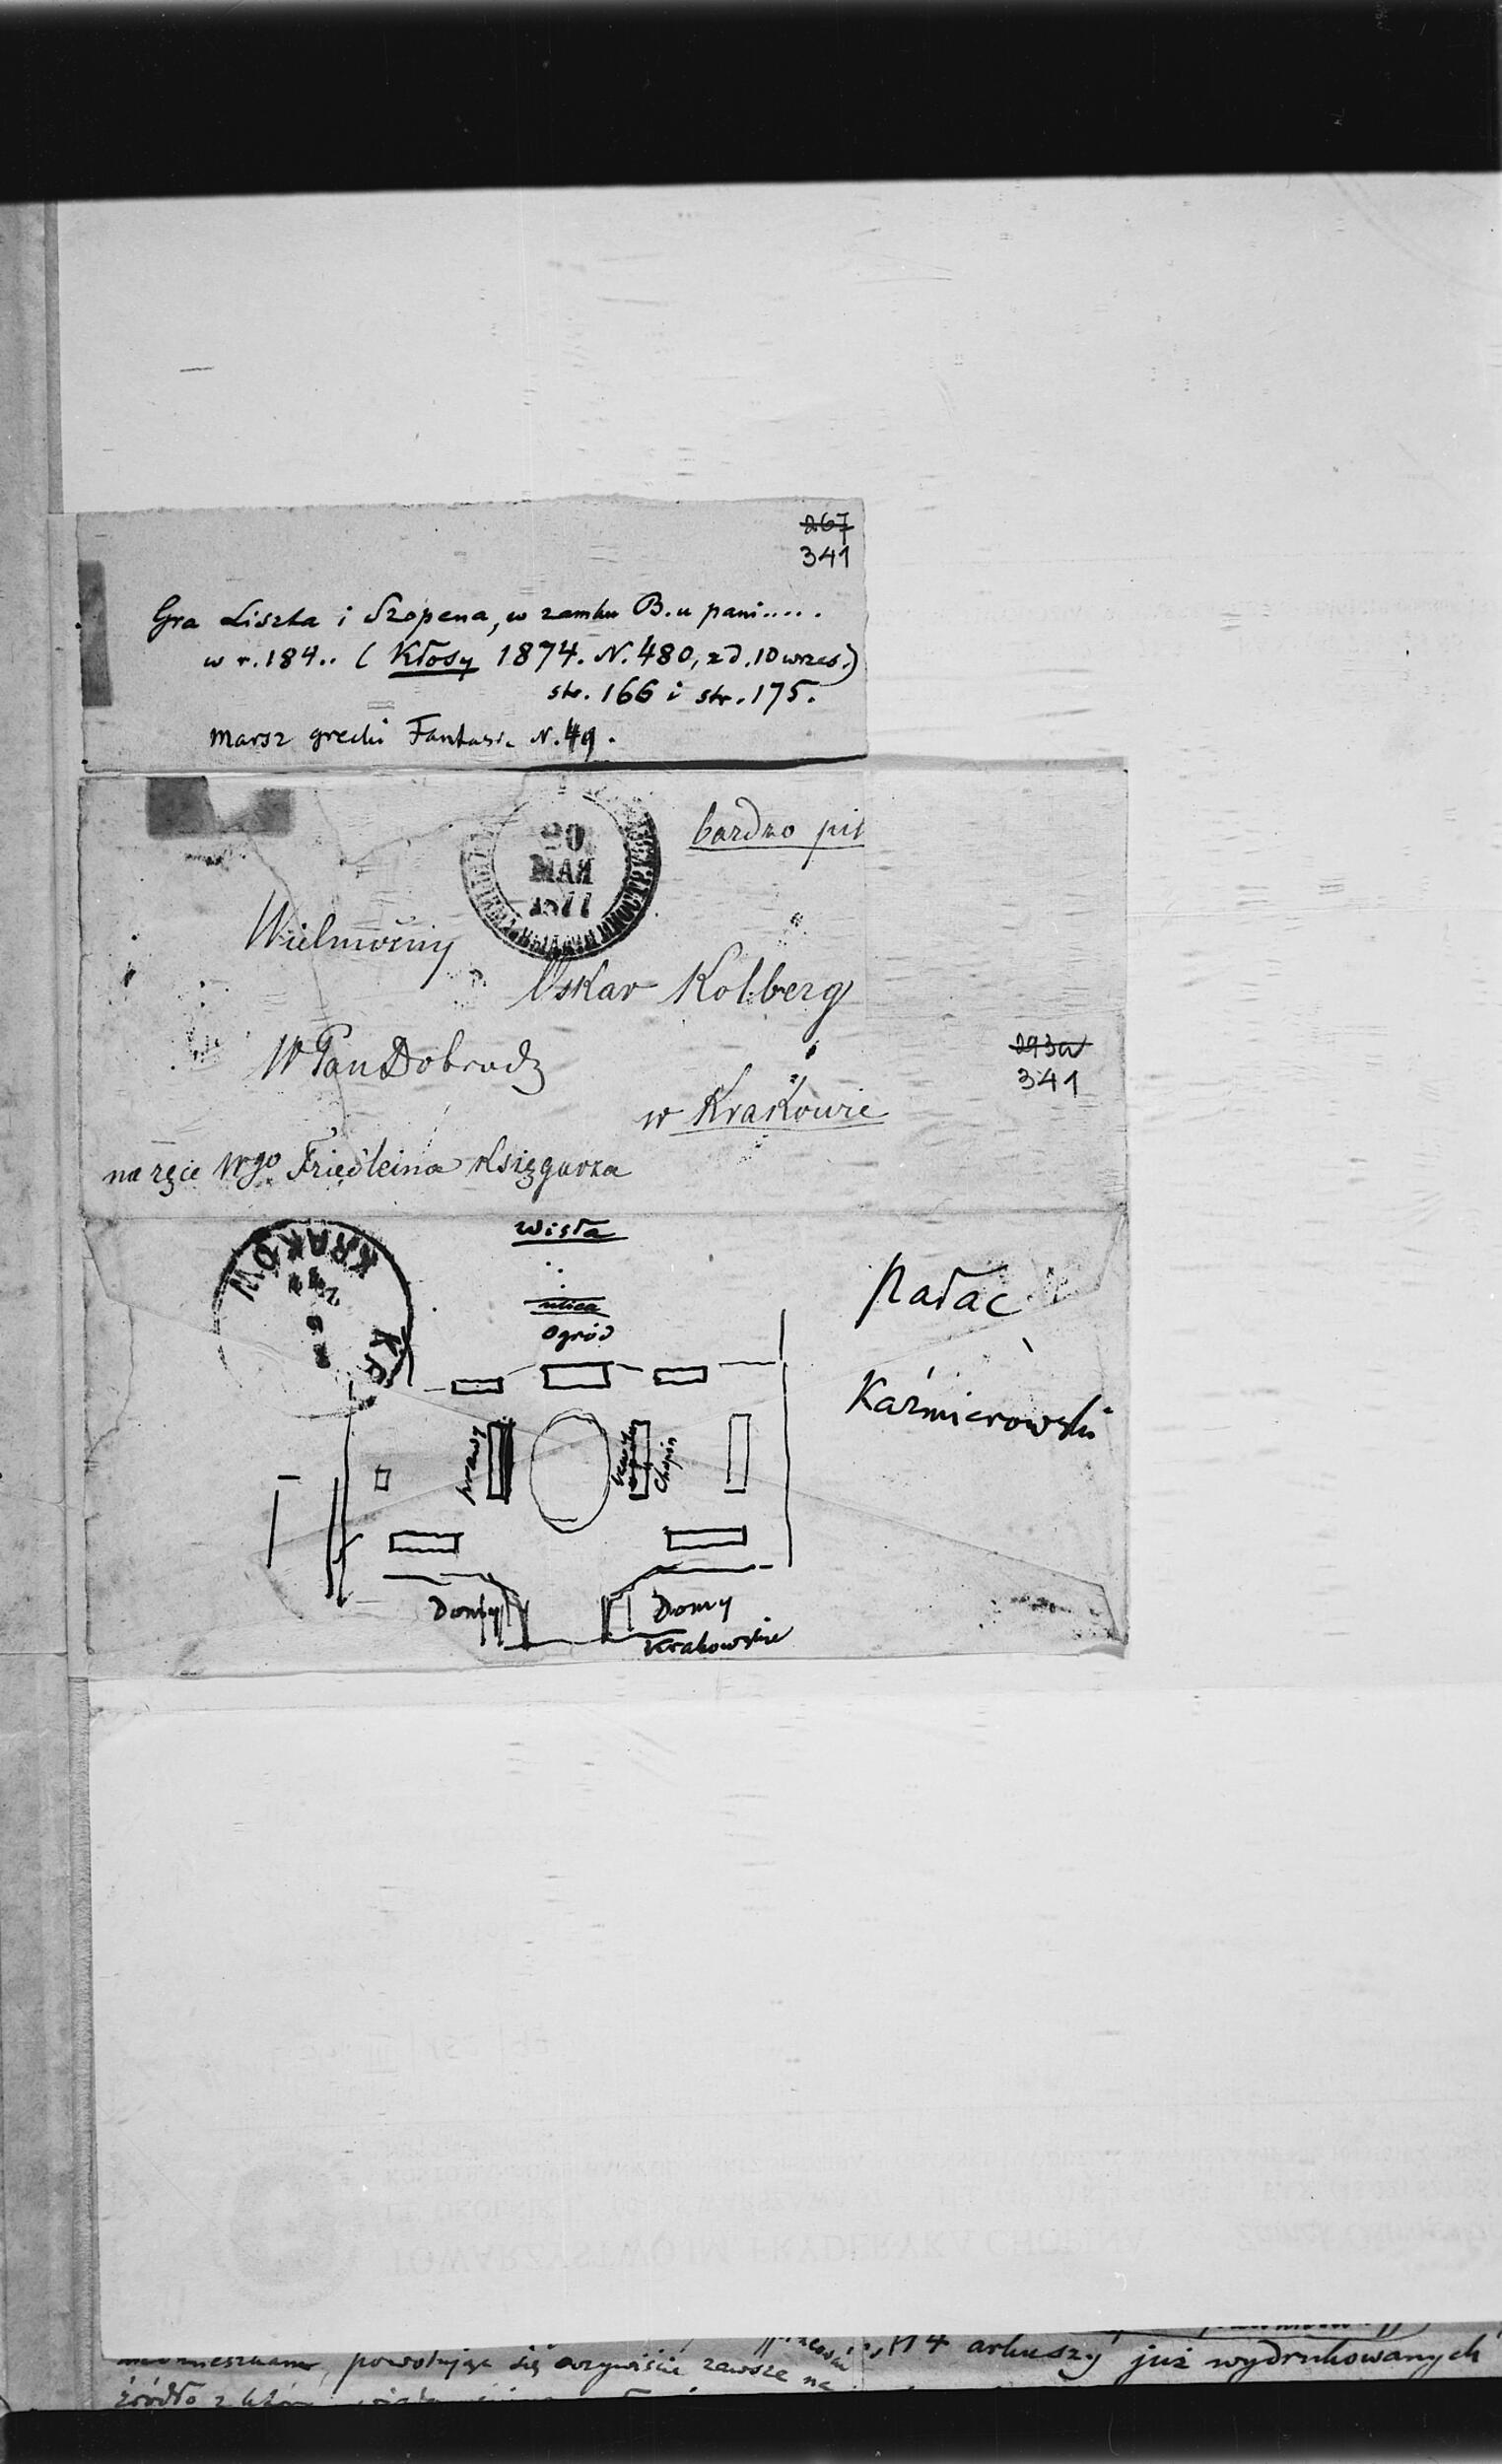 267
341
Gra Liszta i Szopena, w zamku B. u pani.....
w r. 184.. (Kłosy 1874. N. 480, z d. 10 wrześ.)
str. 166 i str. 175.
marsz grecki N. 49.
20
МАЯ
1877
bardzo pil
Wielmożny
Oskar Kolberg
W Pan Dobrodz
w Krakowie
293a
341
na ręce Wgo Friedleina Księgarza
KRAKÓW
Wisła
ulica
Ogród
Pałac
Kaźmierowski
prawy
Chopin
Domy
Domy
Krakowskie
14 arkuszy już wydrukowanych
powołując się oczywiście zawsze na
źródło z
TOWARZYSTWO IM. FRYDERYKA CHOPINA